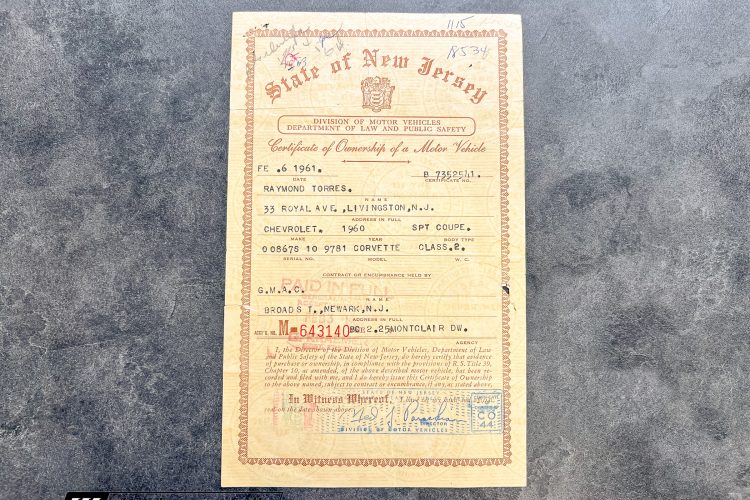 1115
18534
State of New Jersey
DIVISION OF MOTOR VEHICLES
DEPARTMENT OF LAW AND PUBLIC SAFETY
Certificate of Ownership of a Motor Vehicle
FE .6 1961.
DATE
CERTIFICATE NO.
RAYMOND TORRES.
NAME
33 ROYAL AVE.,LIVINGSTON,N.J.
ADDRESS IN FULL
CHEVROLET. 1960 SPT COUPE.
MAKE YEAR BODY TYPE
00867S 10 9781 CORVETTE CLASS.2.
SERIAL NO. MODEL W. C.
CONTRACT OR ENCUMBRANCE HELD BY
PAID IN FULL
G.M.A.C.
NAME
BROAD ST.,NEWARK,N.J.
ADDRESS IN FULL
M-643140 2.25MONTCLAIR DW.
AGENCY
I, the Director of the Division of Motor Vehicles, Department of Law
and Public Safety of the State of New Jersey, do hereby certify that evidence
of purchase or ownership, in compliance with the provisions of R. S. Title 39,
Chapter 10, as amended, of the above described motor vehicle, has been
recorded and filed with me, and I do hereby issue this Certificate of Ownership
to the above named, subject to contract or encumbrance, if any, as stated above.
STATE OF NEW JERSEY
In Witness Whereof,
seal on the date shown above.
DIRECTOR
DIVISION OF MOTOR VEHICLES
CO
44